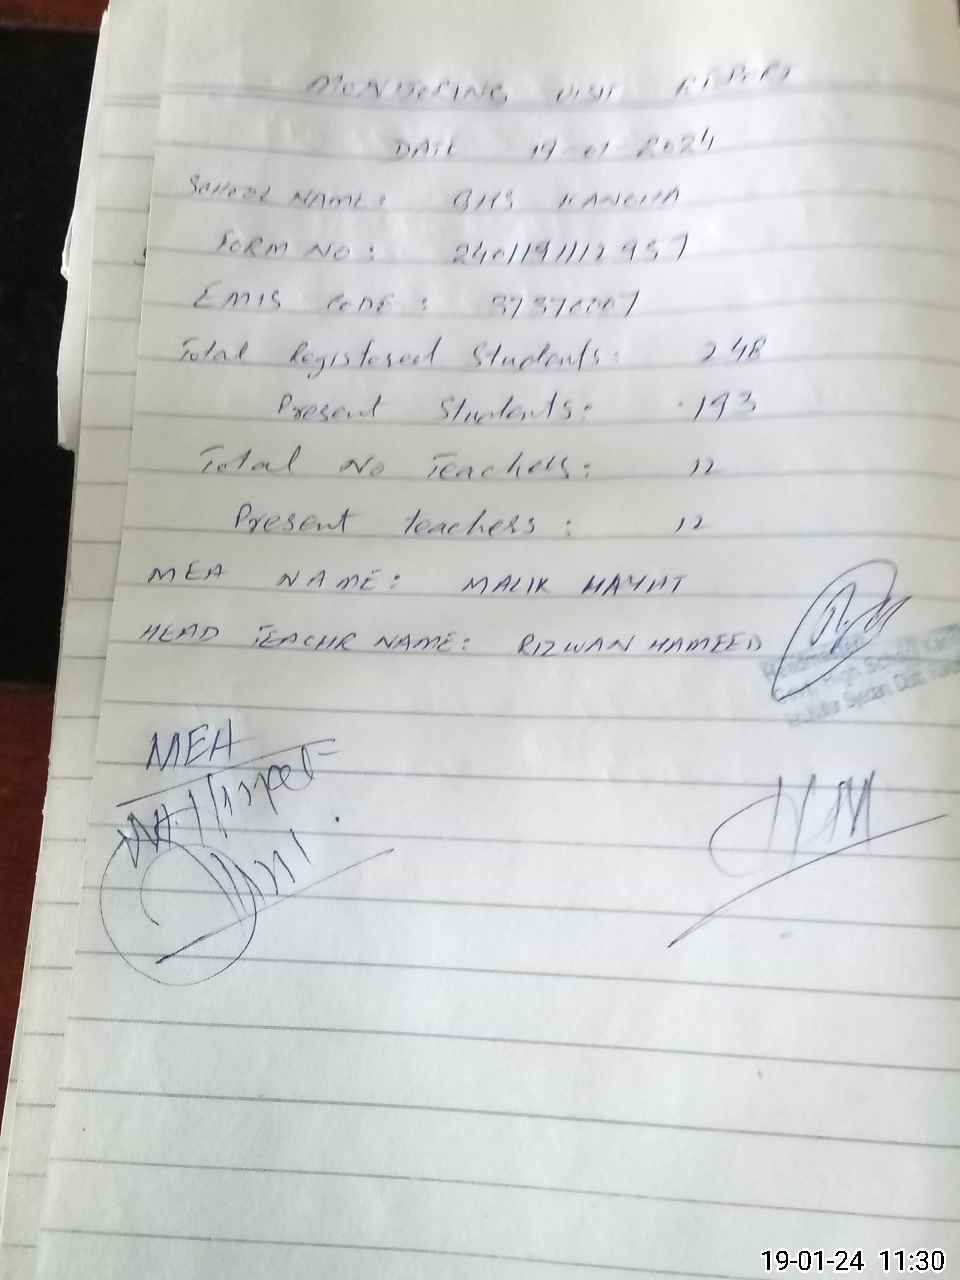 MONITORING VISIT REPORT
DATE 19-01-2024
SCHOOL NAME: GHS KANGHA
FORM NO: 240119112957
EMIS CODE: 37370007
Total Registered Students: 248
Present Students: 193
Total No Teachers: 12
Present teachers: 12
MEA NAME: MALIK HAYAT
HEAD TEACHR NAME: RIZWAN HAMEED
Headmaster
Govt. High School
Distt.
MEA
HM
19-01-24 11:30